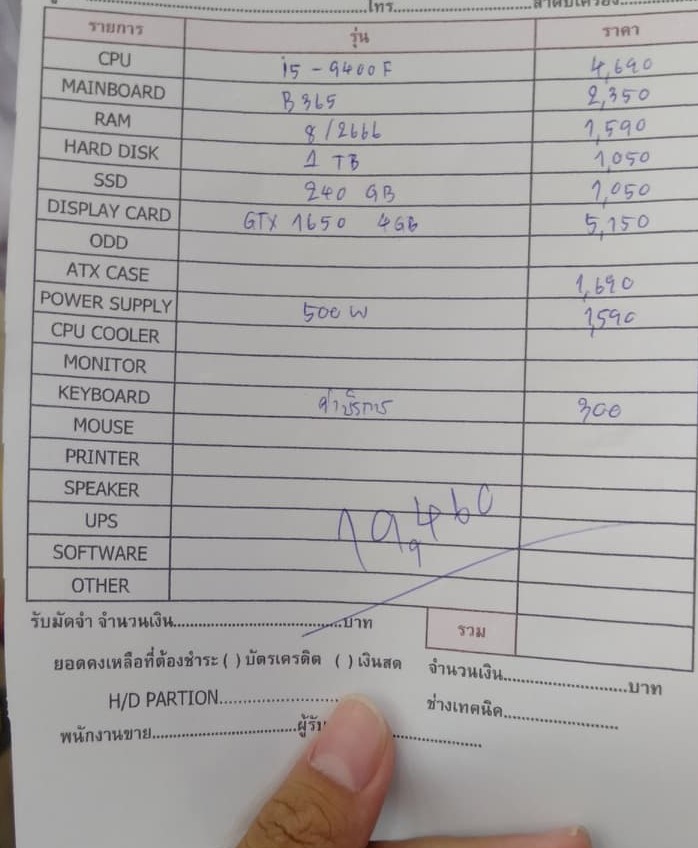 โทร.............................ลำดับเครื่อง
รายการ รุ่น ราคา
CPU i5 - 9400F 4,690
MAINBOARD B365 2,350
RAM 8/2666 1,590
HARD DISK 1 TB 1,050
SSD 240 GB 1,050
DISPLAY CARD GTX 1650 4GB 5,150
ODD
ATX CASE 1,690
POWER SUPPLY 500 W 1,590
CPU COOLER
MONITOR
KEYBOARD ค่าบริการ 300
MOUSE
PRINTER
SPEAKER
UPS 19,460
SOFTWARE
OTHER
รับมัดจำ จำนวนเงิน.............................บาท รวม
ยอดคงเหลือที่ต้องชำระ ( ) บัตรเครดิต ( ) เงินสด จำนวนเงิน.............................บาท
H/D PARTION............................. ช่างเทคนิค.............................
พนักงานขาย.............................ผู้รับ